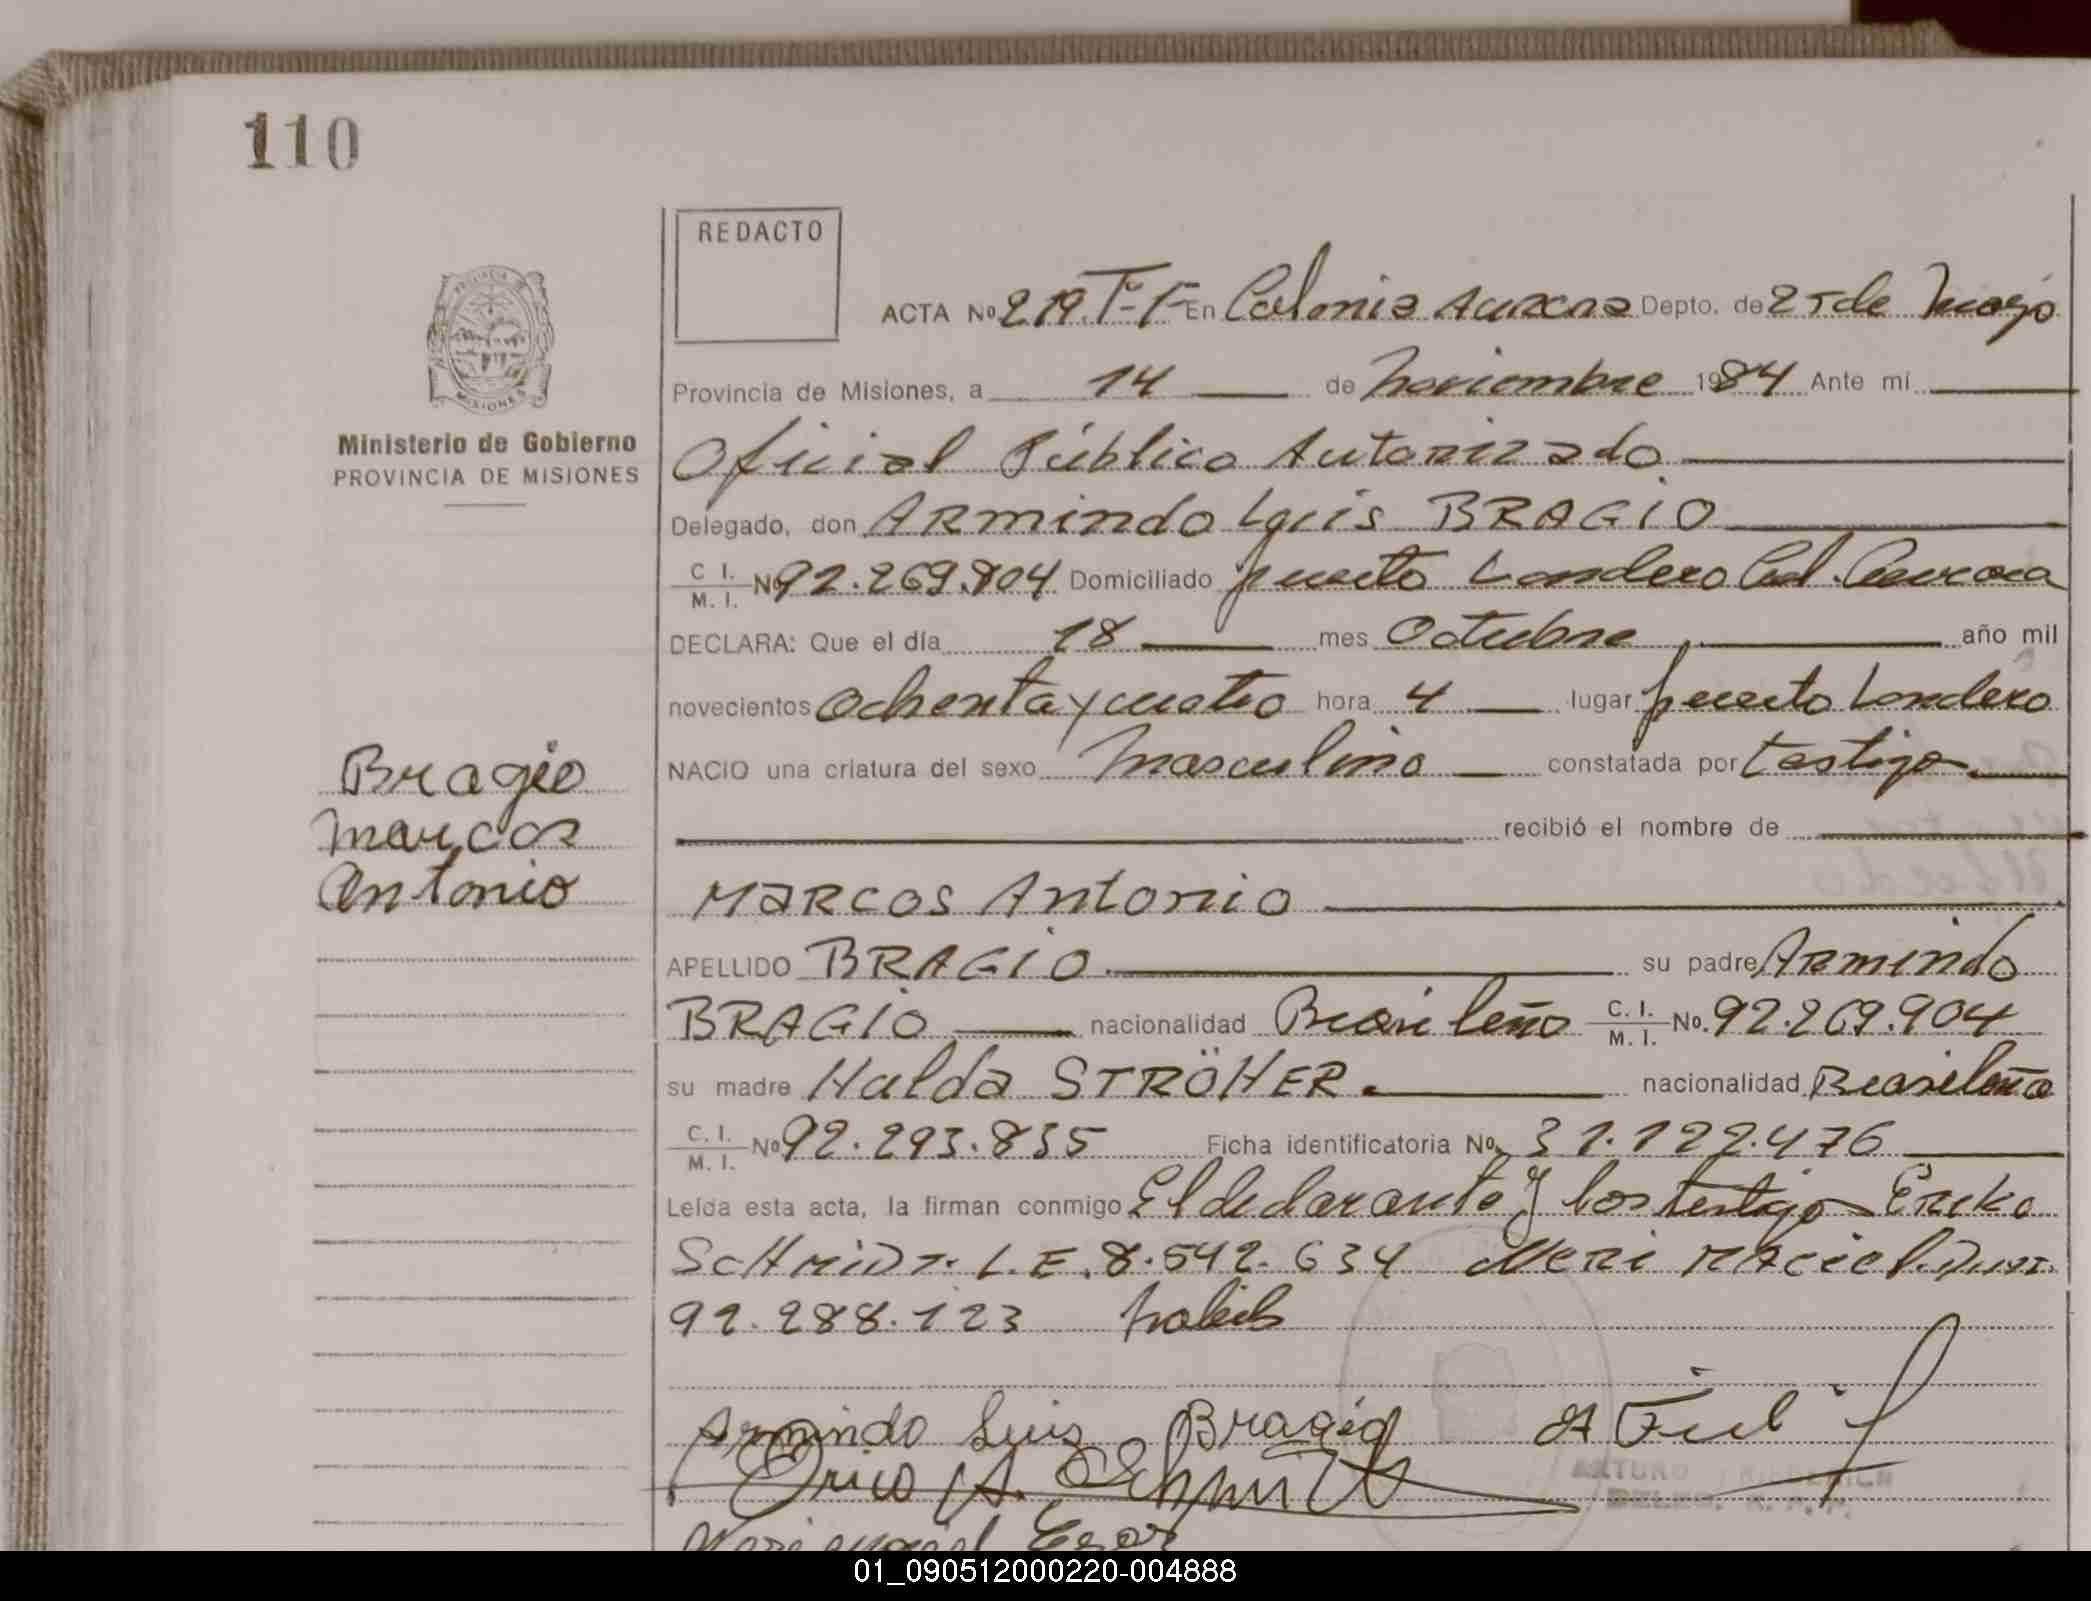 110
REDACTO
ACTA Nº 219. Tº-1º En Colonia Aurora Depto. de 25 de Mayo
Provincia de Misiones, a 14 de Noviembre 1984 Ante mí
Ministerio de Gobierno
PROVINCIA DE MISIONES
Oficial Público Autorizado
Delegado, don ARmindo Luis BRAGIO
C. I. M. I. Nº 92.269.904 Domiciliado puerto Londero Col. Aurora
DECLARA: Que el día 18 mes Octubre año mil
novecientos Ochenta y cuatro hora 4 lugar puerto Londero
NACIO una criatura del sexo Masculino constatada por testigo
recibió el nombre de
Bragio
Marcos
Antonio
MARCOS Antonio
APELLIDO BRAGIO su padre ARmindo
BRAGIO nacionalidad Brasileño C. I. M. I. No. 92.269.904
su madre Hulda STRÖHER. nacionalidad Brasileña
C. I. M. I. Nº 92.293.835 Ficha identificatoria No. 31.122.476
Leída esta acta, la firman conmigo El declarante y los testigo
SCHMIDT. L.E. 8.542.634 Neri MAciel
92.288.123
Armindo Luis Bragio
Erico A. Schmidt
ARTURO
01_090512000220-004888